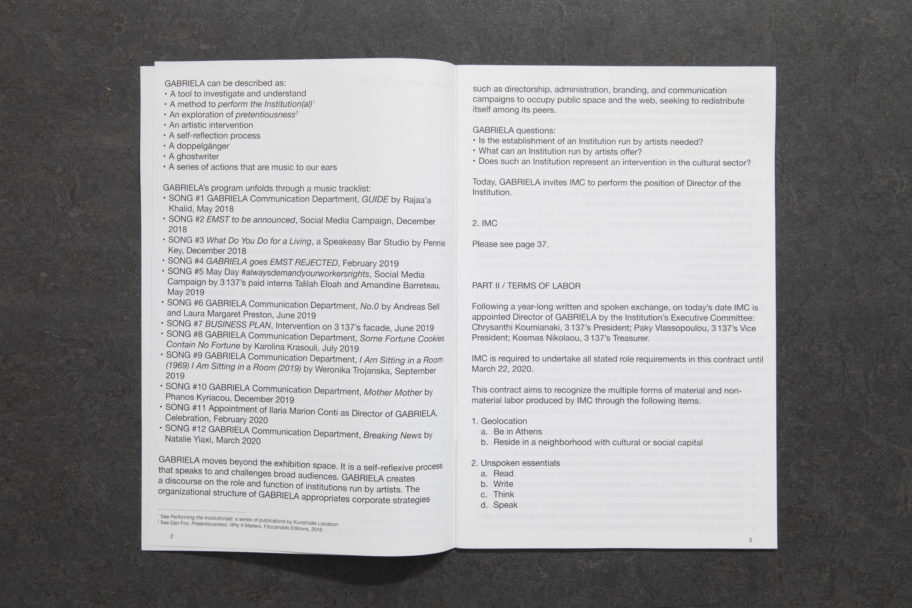 GABRIELA can be described as:
• A tool to investigate and understand
• A method to perform the Institution(al)¹
• An exploration of pretentiousness²
• An artistic intervention
• A self-reflection process
• A doppelgänger
• A ghostwriter
• A series of actions that are music to our ears
GABRIELA's program unfolds through a music tracklist:
• SONG #1 GABRIELA Communication Department, GUIDE by Rajaa'a
Khalid, May 2018
• SONG #2 EMST to be announced, Social Media Campaign, December
2018
• SONG #3 What Do You Do for a Living, a Speakeasy Bar Studio by Pennie
Key, December 2018
• SONG #4 GABRIELA goes EMST REJECTED, February 2019
• SONG #5 May Day #alwaysdemandyourworkersrights, Social Media
Campaign by 3 137's paid interns Talilah Eloah and Amandine Barreteau,
May 2019
• SONG #6 GABRIELA Communication Department, No.0 by Andreas Sell
and Laura Margaret Preston, June 2019
• SONG #7 BUSINESS PLAN, Intervention on 3 137's facade, June 2019
• SONG #8 GABRIELA Communication Department, Some Fortune Cookies
Contain No Fortune by Karolina Krasouli, July 2019
• SONG #9 GABRIELA Communication Department, I Am Sitting in a Room
(1969) I Am Sitting in a Room (2019) by Weronika Trojanska, September
2019
• SONG #10 GABRIELA Communication Department, Mother Mother by
Phanos Kyriacou, December 2019
• SONG #11 Appointment of Ilaria Marion Conti as Director of GABRIELA.
Celebration, February 2020
• SONG #12 GABRIELA Communication Department, Breaking News by
Natalie Yiaxi, March 2020
GABRIELA moves beyond the exhibition space. It is a self-reflexive process
that speaks to and challenges broad audiences. GABRIELA creates
a discourse on the role and function of institutions run by artists. The
organizational structure of GABRIELA appropriates corporate strategies
¹ See Performing the Institution(al): a series of publications by Kunsthalle Lissabon
² See Dan Fox, Pretentiousness: Why It Matters, Fitzcarraldo Editions, 2016
2
such as directorship, administration, branding, and communication
campaigns to occupy public space and the web, seeking to redistribute
itself among its peers.
GABRIELA questions:
• Is the establishment of an Institution run by artists needed?
• What can an Institution run by artists offer?
• Does such an Institution represent an intervention in the cultural sector?
Today, GABRIELA invites IMC to perform the position of Director of the
Institution.
2. IMC
Please see page 37.
PART II / TERMS OF LABOR
Following a year-long written and spoken exchange, on today's date IMC is
appointed Director of GABRIELA by the Institution's Executive Committee:
Chrysanthi Koumianaki, 3 137's President; Paky Vlassopoulou, 3 137's Vice
President; Kosmas Nikolaou, 3 137's Treasurer.
IMC is required to undertake all stated role requirements in this contract until
March 22, 2020.
This contract aims to recognize the multiple forms of material and non-
material labor produced by IMC through the following items.
1. Geolocation
a. Be in Athens
b. Reside in a neighborhood with cultural or social capital
2. Unspoken essentials
a. Read
b. Write
c. Think
d. Speak
3